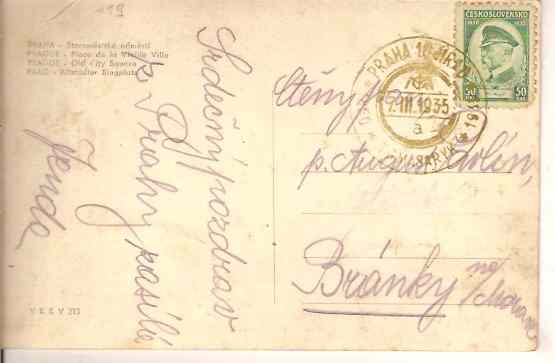 PRAHA - Staroměstské náměstí
PRAGUE - Place de la Vieille Ville
PRAGUE - Old City Square
PRAG - Altstädter Ringplatz
Srdečný pozdrav
z Prahy zasílá
Jenda
V K K V 213
ČESKOSLOVENSKO
1850 1935
50 50
PRAHA 10
7.III.1935
a
MASARYK
p. August
Bránky
na Moravě